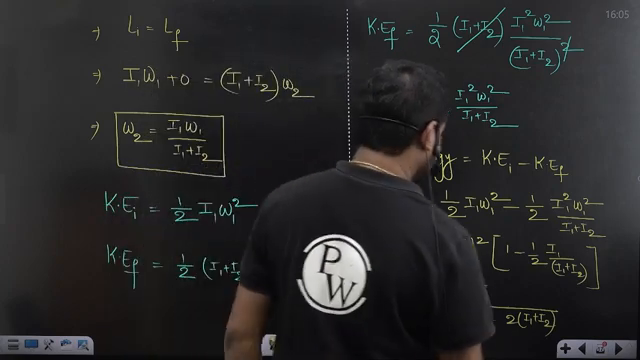 16:05
⇒ L₁ = L_f
⇒ I₁W₁ + 0 = (I₁+I₂) ω₂
⇒ ω₂ = I₁W₁ / I₁+I₂
K·E_i = 1/2 I₁ω₁²
K·E_f = 1/2 (I₁+I₂
K·E_f = 1/2 (I₁+I₂) I₁²ω₁² / (I₁+I₂)²
I₁²ω₁² / I₁+I₂
gy = K·E_i − K·E_f
1/2 I₁ω₁² − 1/2 I₁²ω₁² / I₁+I₂
2 [ 1 − 1/2 I₁ / (I₁+I₂) ]
2(I₁+I₂)
PW